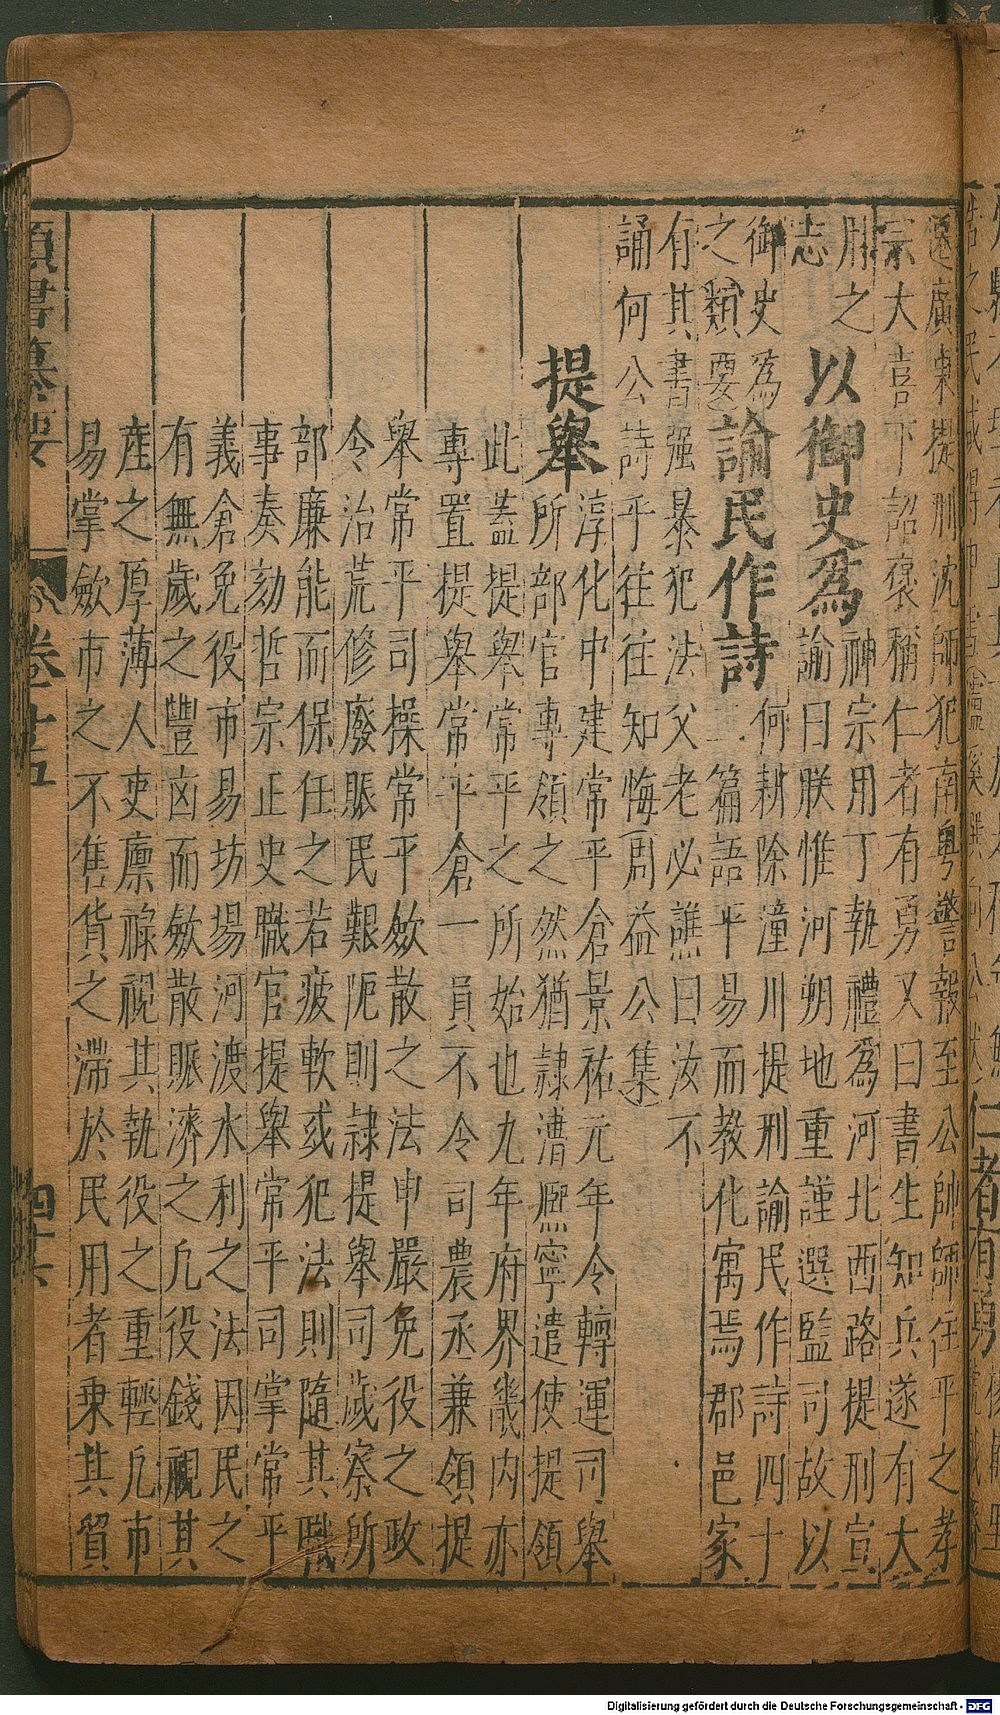 遷廣東提刑沈師犯南粵警報至公帥師往平之孝
宗大喜下詔褒稱仁者有勇又曰書生知兵遂有大
用之 以御史爲 神宗用丁執禮爲河北西路提刑宣
志 諭曰朕惟河朔地重謹選監司故以
御史爲
之類要 論民作詩 何耕除潼川提刑諭民作詩四十
二篇語平易而教化寓焉郡邑家
有其書强暴犯法父老必譙曰汝不
誦何公詩乎往往知悔周益公集
提舉 淳化中建常平倉景祐元年令轉運司舉
所部官專領之然猶隷漕熈寧遣使提領
此蓋提舉常平之所始也九年府界畿内亦
專置提舉常平倉一員不令司農丞兼領提
舉常平司操常平斂散之法申嚴免役之政
令治荒修廢賑民艱阨則隷提舉司歲察所
部廉能而保任之若疲軟或犯法則隨其職
事奏劾哲宗正史職官提舉常平司掌常平
義倉免役市易坊場河渡水利之法因民之
有無歲之豐凶而斂散賑濟之凢役錢視其
產之厚薄人吏廪祿視其執役之重輕凢市
易掌斂市之不售貨之滯於民用者乗其貿
類書纂要 卷二十五
Digitalisierung gefördert durch die Deutsche Forschungsgemeinschaft - DFG